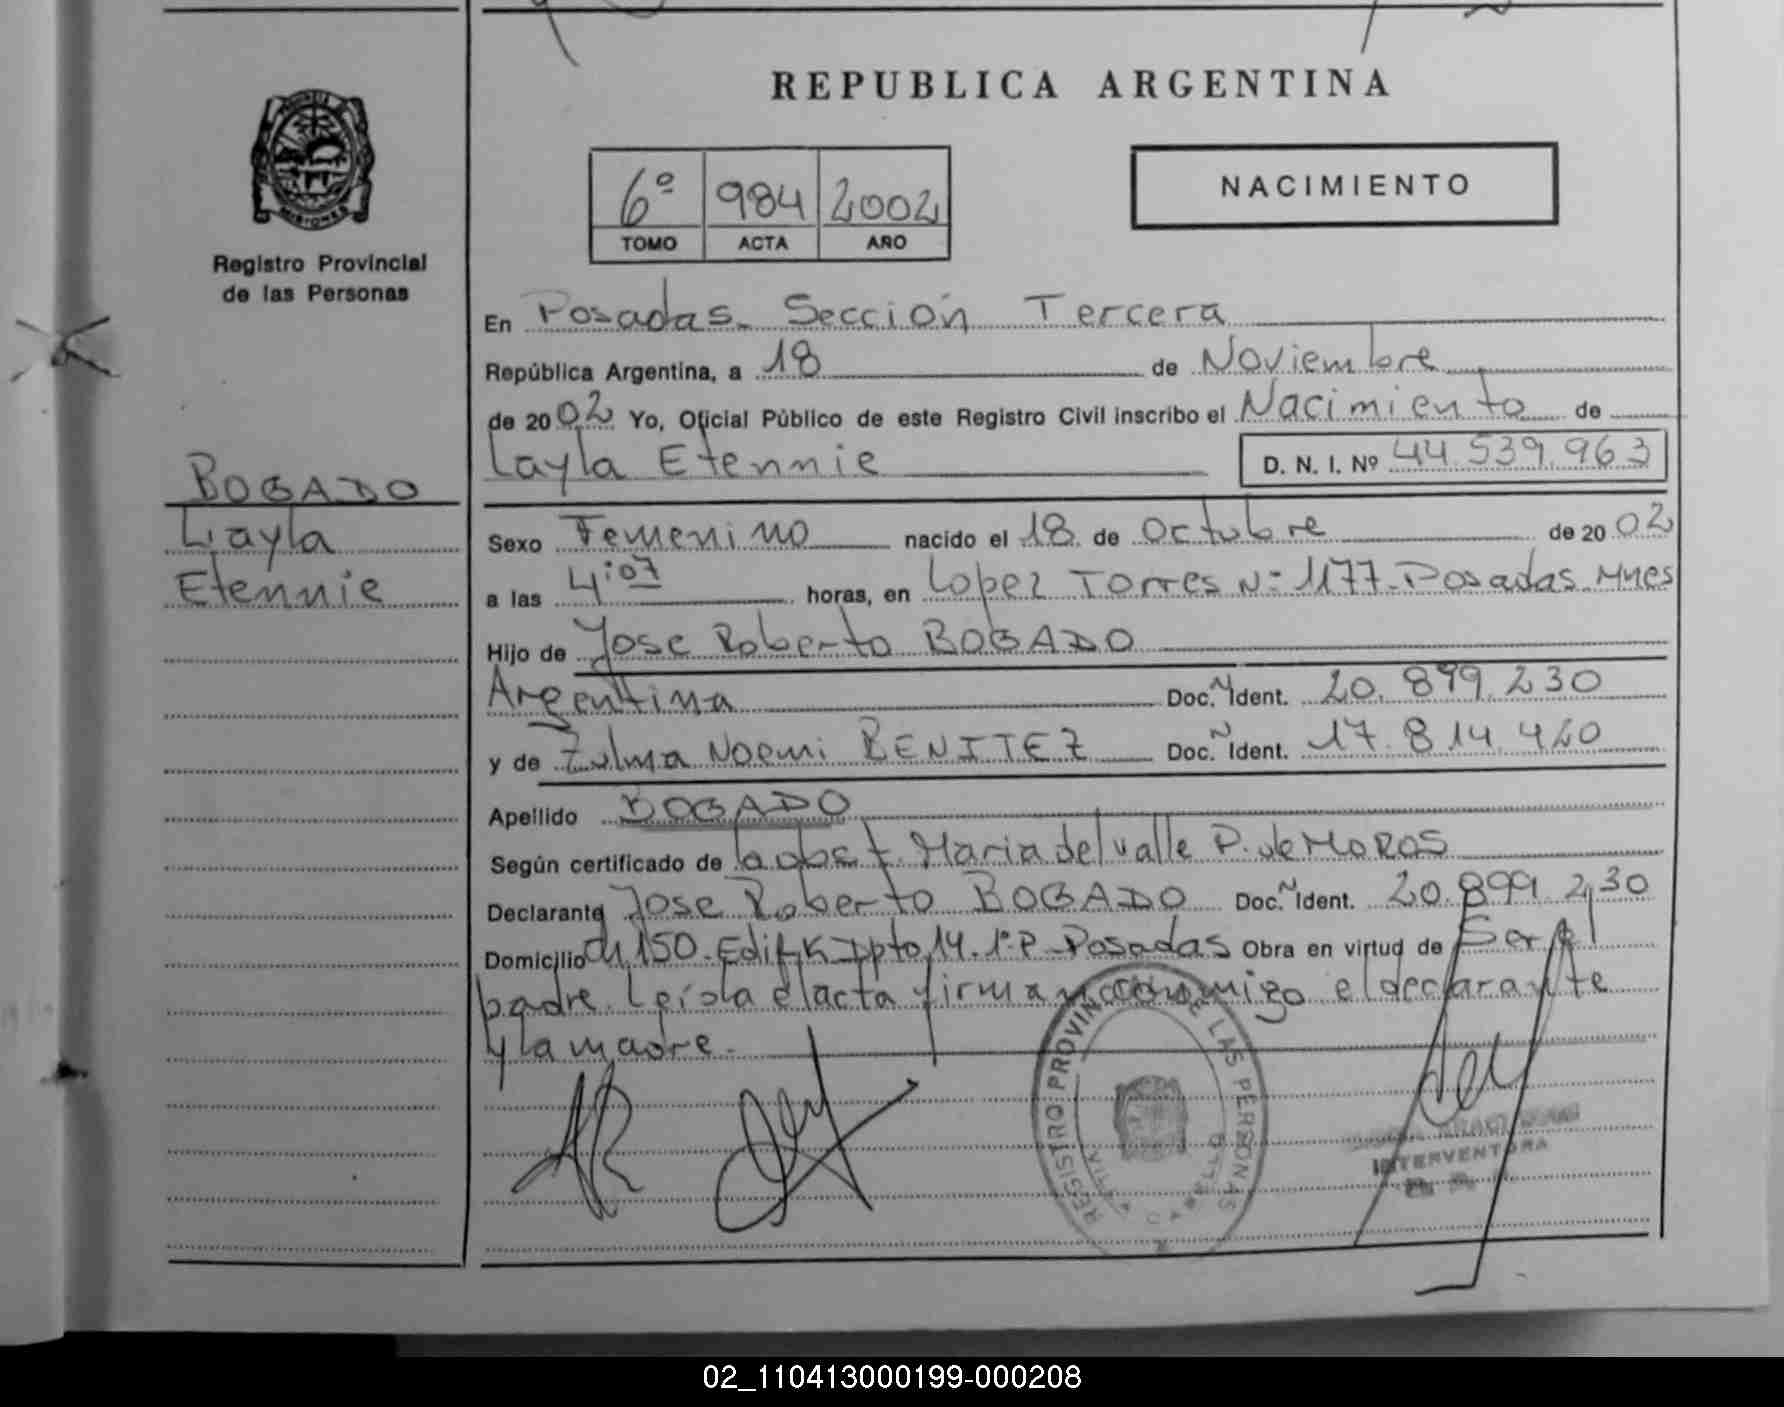 REPUBLICA ARGENTINA
MISIONES
Registro Provincial
de las Personas
6º 984 2002
TOMO ACTA AÑO
NACIMIENTO
BOGADO
Layla
Etennie
En Posadas. Sección Tercera
República Argentina, a 18 de Noviembre
de 2002 Yo, Oficial Público de este Registro Civil inscribo el Nacimiento de
Layla Etennie D. N. I. Nº 44.539.963
Sexo Femenino nacido el 18 de Octubre de 2002
a las 4:07 horas, en Lopez Torres Nº 1177. Posadas Mnes
Hijo de Jose Roberto BOGADO
Argentina Doc. Ident. 20.899.230
y de Zulma Noemi BENITEZ Doc. Ident. 17.814.420
Apellido BOGADO
Según certificado de la obst. Maria del Valle P. de MOROS
Declarante Jose Roberto BOGADO Doc. Ident. 20.899.230
Domicilio Ch 150. Edif. K Dpto 14. 1º P. Posadas Obra en virtud de Ser el
padre. Leída el acta firman conmigo el declarante
y la madre.
REGISTRO PROVINCIAL DE LAS PERSONAS
INTERVENTORA
02_110413000199-000208